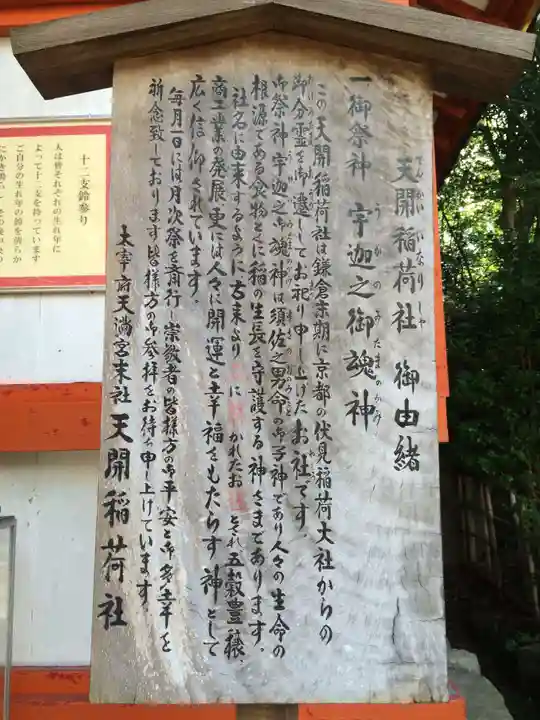 天開稲荷社 御由緒
てんかいいなりしゃ
一御祭神 宇迦之御魂神
うかのみたまのかみ
この天開稲荷社は鎌倉末期に京都の伏見稲荷大社からの
御分霊を御遷ししてお祀り申し上げたお社です。
御祭神宇迦之御魂神は須佐之男命の御子神であり人々の生命の
根源である食物とくに稲の生長を守護する神さまであります。
社名に由来するように古来より に かれたお とされ五穀豊穣、
商工業の発展、更には人々に開運と幸福をもたらす神として
広く信仰されています。
毎月一日には月次祭を斎行し崇敬者の皆様方の御平安と御多幸を
祈念致しております。皆様方の御参拝をお待ち申し上げています。
太宰府天満宮末社 天開稲荷社
十二支鈴参り
人は皆それぞれの生れ年に
よって十二支を持っています
ご自分の生れ年の鈴を振らか